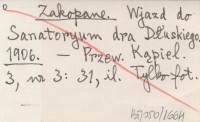 Zakopane. Wjazd do
Sanatoryum dra Dłuskiego.
1906. — Przew. Kąpiel.
3, nr 3: 31, il. Tylko fot.